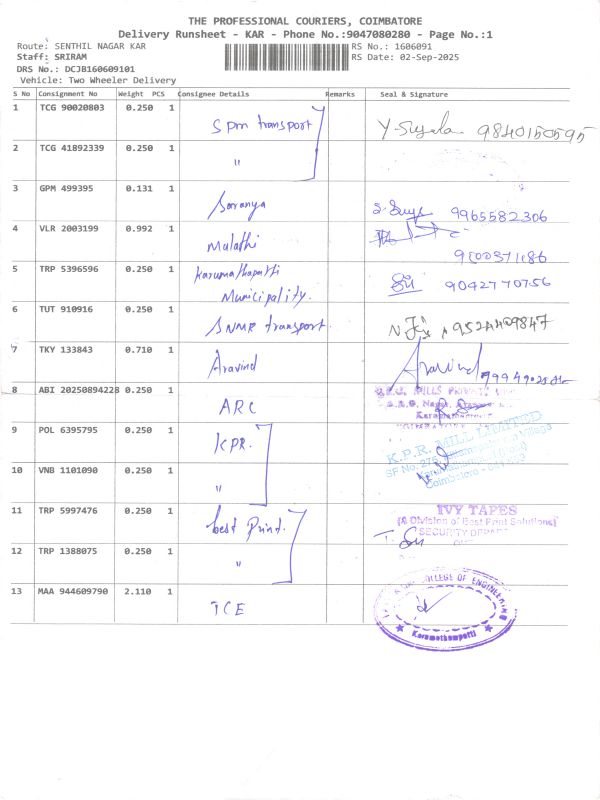 THE PROFESSIONAL COURIERS, COIMBATORE
Delivery Runsheet - KAR - Phone No.:9047080280 - Page No.:1
Route: SENTHIL NAGAR KAR RS No.: 1606091
Staff: SRIRAM RS Date: 02-Sep-2025
DRS No.: DCJB160609101
Vehicle: Two Wheeler Delivery
S No Consignment No Weight PCS Consignee Details Remarks Seal & Signature
1 TCG 90020803 0.250 1 Spm transport 9840150595
2 TCG 41892339 0.250 1 "
3 GPM 499395 0.131 1 Saranya 9965582306
4 VLR 2003199 0.992 1 Malathi
5 TRP 5396596 0.250 1 Karumathapatti Municipality. 9042770756
6 TUT 910916 0.250 1 SNMR transport 9524409847
7 TKY 133843 0.710 1 Aravind Aravind
8 ABI 20250894228 0.250 1 ARC MILLS
9 POL 6395795 0.250 1 KPR. K.P.R. MILL LIMITED
SF No:
10 VNB 1101090 0.250 1 " Coimbatore
11 TRP 5997476 0.250 1 best Print. IVY TAPES
(A Division of Best Print Solutions)
SECURITY
12 TRP 1388075 0.250 1 "
13 MAA 944609790 2.110 1 TCE COLLEGE OF ENGINEERING
Karumathampatti